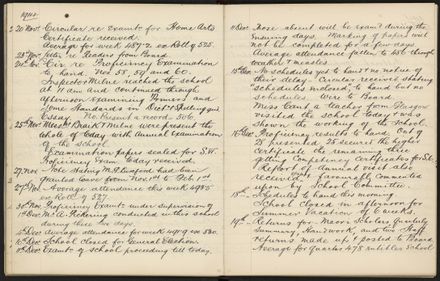 1911
20 Nov. Circular re Exam't for Home Arts
Certificate received.
Average for week 487·2 on Roll of 525
23rd Nov. Letter re Readers from Board.
24th Nov. Cir. re Proficiency Examination
to hand. Nos 58, 59 and 60.
Inspector Milne reached the school
at 11 am and continued through
afternoon examining Primers and
some Standards in
Essay. No. Present a record 506.
25th Nov. Messrs Braik & Milne were present the
whole of today with Annual Examination
of the school.
Examination papers sealed for S.VI
Proficiency Exam today received.
27. Nov. Note stating Ms had been
granted leave from Nov. 1st to Feb. 1st
27th Nov. Average attendance this week 498·5
on Roll of 527.
30th Nov. Proficiency Exam't under supervision of
1st Dec. Mr A. Pickering conducted in this school
during these two days.
4th Dec. Average attendance for week 491·9 on 530.
7th Dec. School closed for General Election.
8th Dec. Exam't of school proceeding till today.
11 Dec. Those absent will be exam'd during the
ensuing days. Marking of papers will
not be completed for a few days.
Average attendance fallen to 456 through
weather & measles.
15th Dec. No schedules yet to hand & no notice of
their delay. Circular received stating
schedules ordered to hand but no
schedules. Wire to Board.
Miss Cant a teacher from Glasgow
visited the school today & was
shown the working of the School.
16th Dec. Proficiency results to hand. Out of
28 presented, 25 secured the higher
Certificate the remaining three
getting Competency Certificates for St. VI.
Report for Annual visit also
received & favourably commented
upon by School Committee.
18th – Schedules to hand this morning.
School closed in afternoon for
Summer Vacation of 6 weeks.
19th – Returns for Maori Scholars, Quarterly
Summary, Handwork, and two Staff
returns made up & posted to Board
Average for Quarter 478